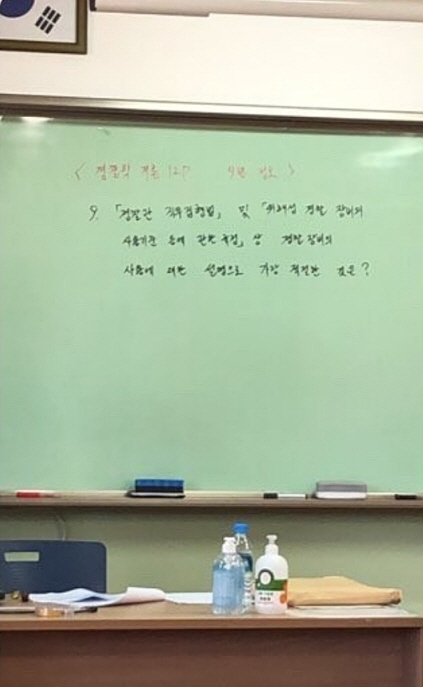 < 경찰학 개론 12P 9번 정오 >
9. 「경찰관 직무집행법」 및 「위해성 경찰 장비의
사용기준 등에 관한 규정」상 경찰장비의
사용에 대한 설명으로 가장 적절한 것은?